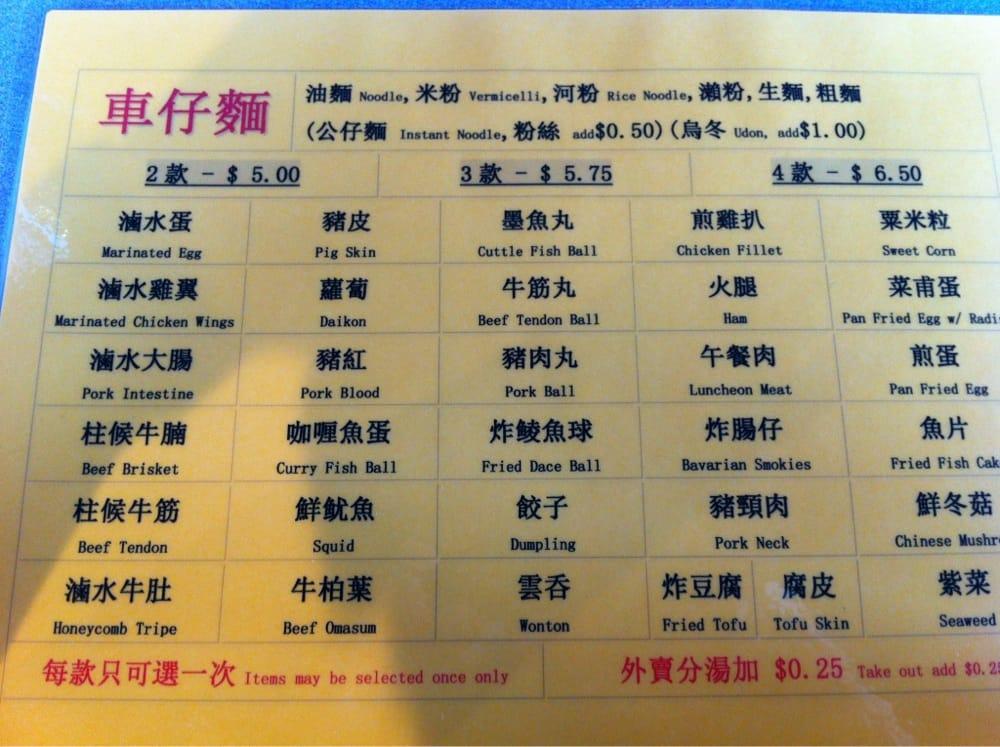 車仔麵
油麵 Noodle, 米粉 Vermicelli, 河粉 Rice Noodle, 瀨粉, 生麵, 粗麵
(公仔麵 Instant Noodle, 粉絲 add$0.50) (烏冬 Udon, add$1.00)
2 款 - $ 5.00 3 款 - $ 5.75 4 款 - $ 6.50
滷水蛋 豬皮 墨魚丸 煎雞扒 粟米粒
Marinated Egg Pig Skin Cuttle Fish Ball Chicken Fillet Sweet Corn
滷水雞翼 蘿蔔 牛筋丸 火腿 菜甫蛋
Marinated Chicken Wings Daikon Beef Tendon Ball Ham Pan Fried Egg w/ Radis
滷水大腸 豬紅 豬肉丸 午餐肉 煎蛋
Pork Intestine Pork Blood Pork Ball Luncheon Meat Pan Fried Egg
柱候牛腩 咖喱魚蛋 炸鲮魚球 炸腸仔 魚片
Beef Brisket Curry Fish Ball Fried Dace Ball Bavarian Smokies Fried Fish Cak
柱候牛筋 鮮魷魚 餃子 豬頸肉 鮮冬菇
Beef Tendon Squid Dumpling Pork Neck Chinese Mushr
滷水牛肚 牛柏葉 雲吞 炸豆腐 腐皮 紫菜
Honeycomb Tripe Beef Omasum Wonton Fried Tofu Tofu Skin Seaweed
每款只可選一次 Items may be selected once only 外賣分湯加 $0.25 Take out add $0.25